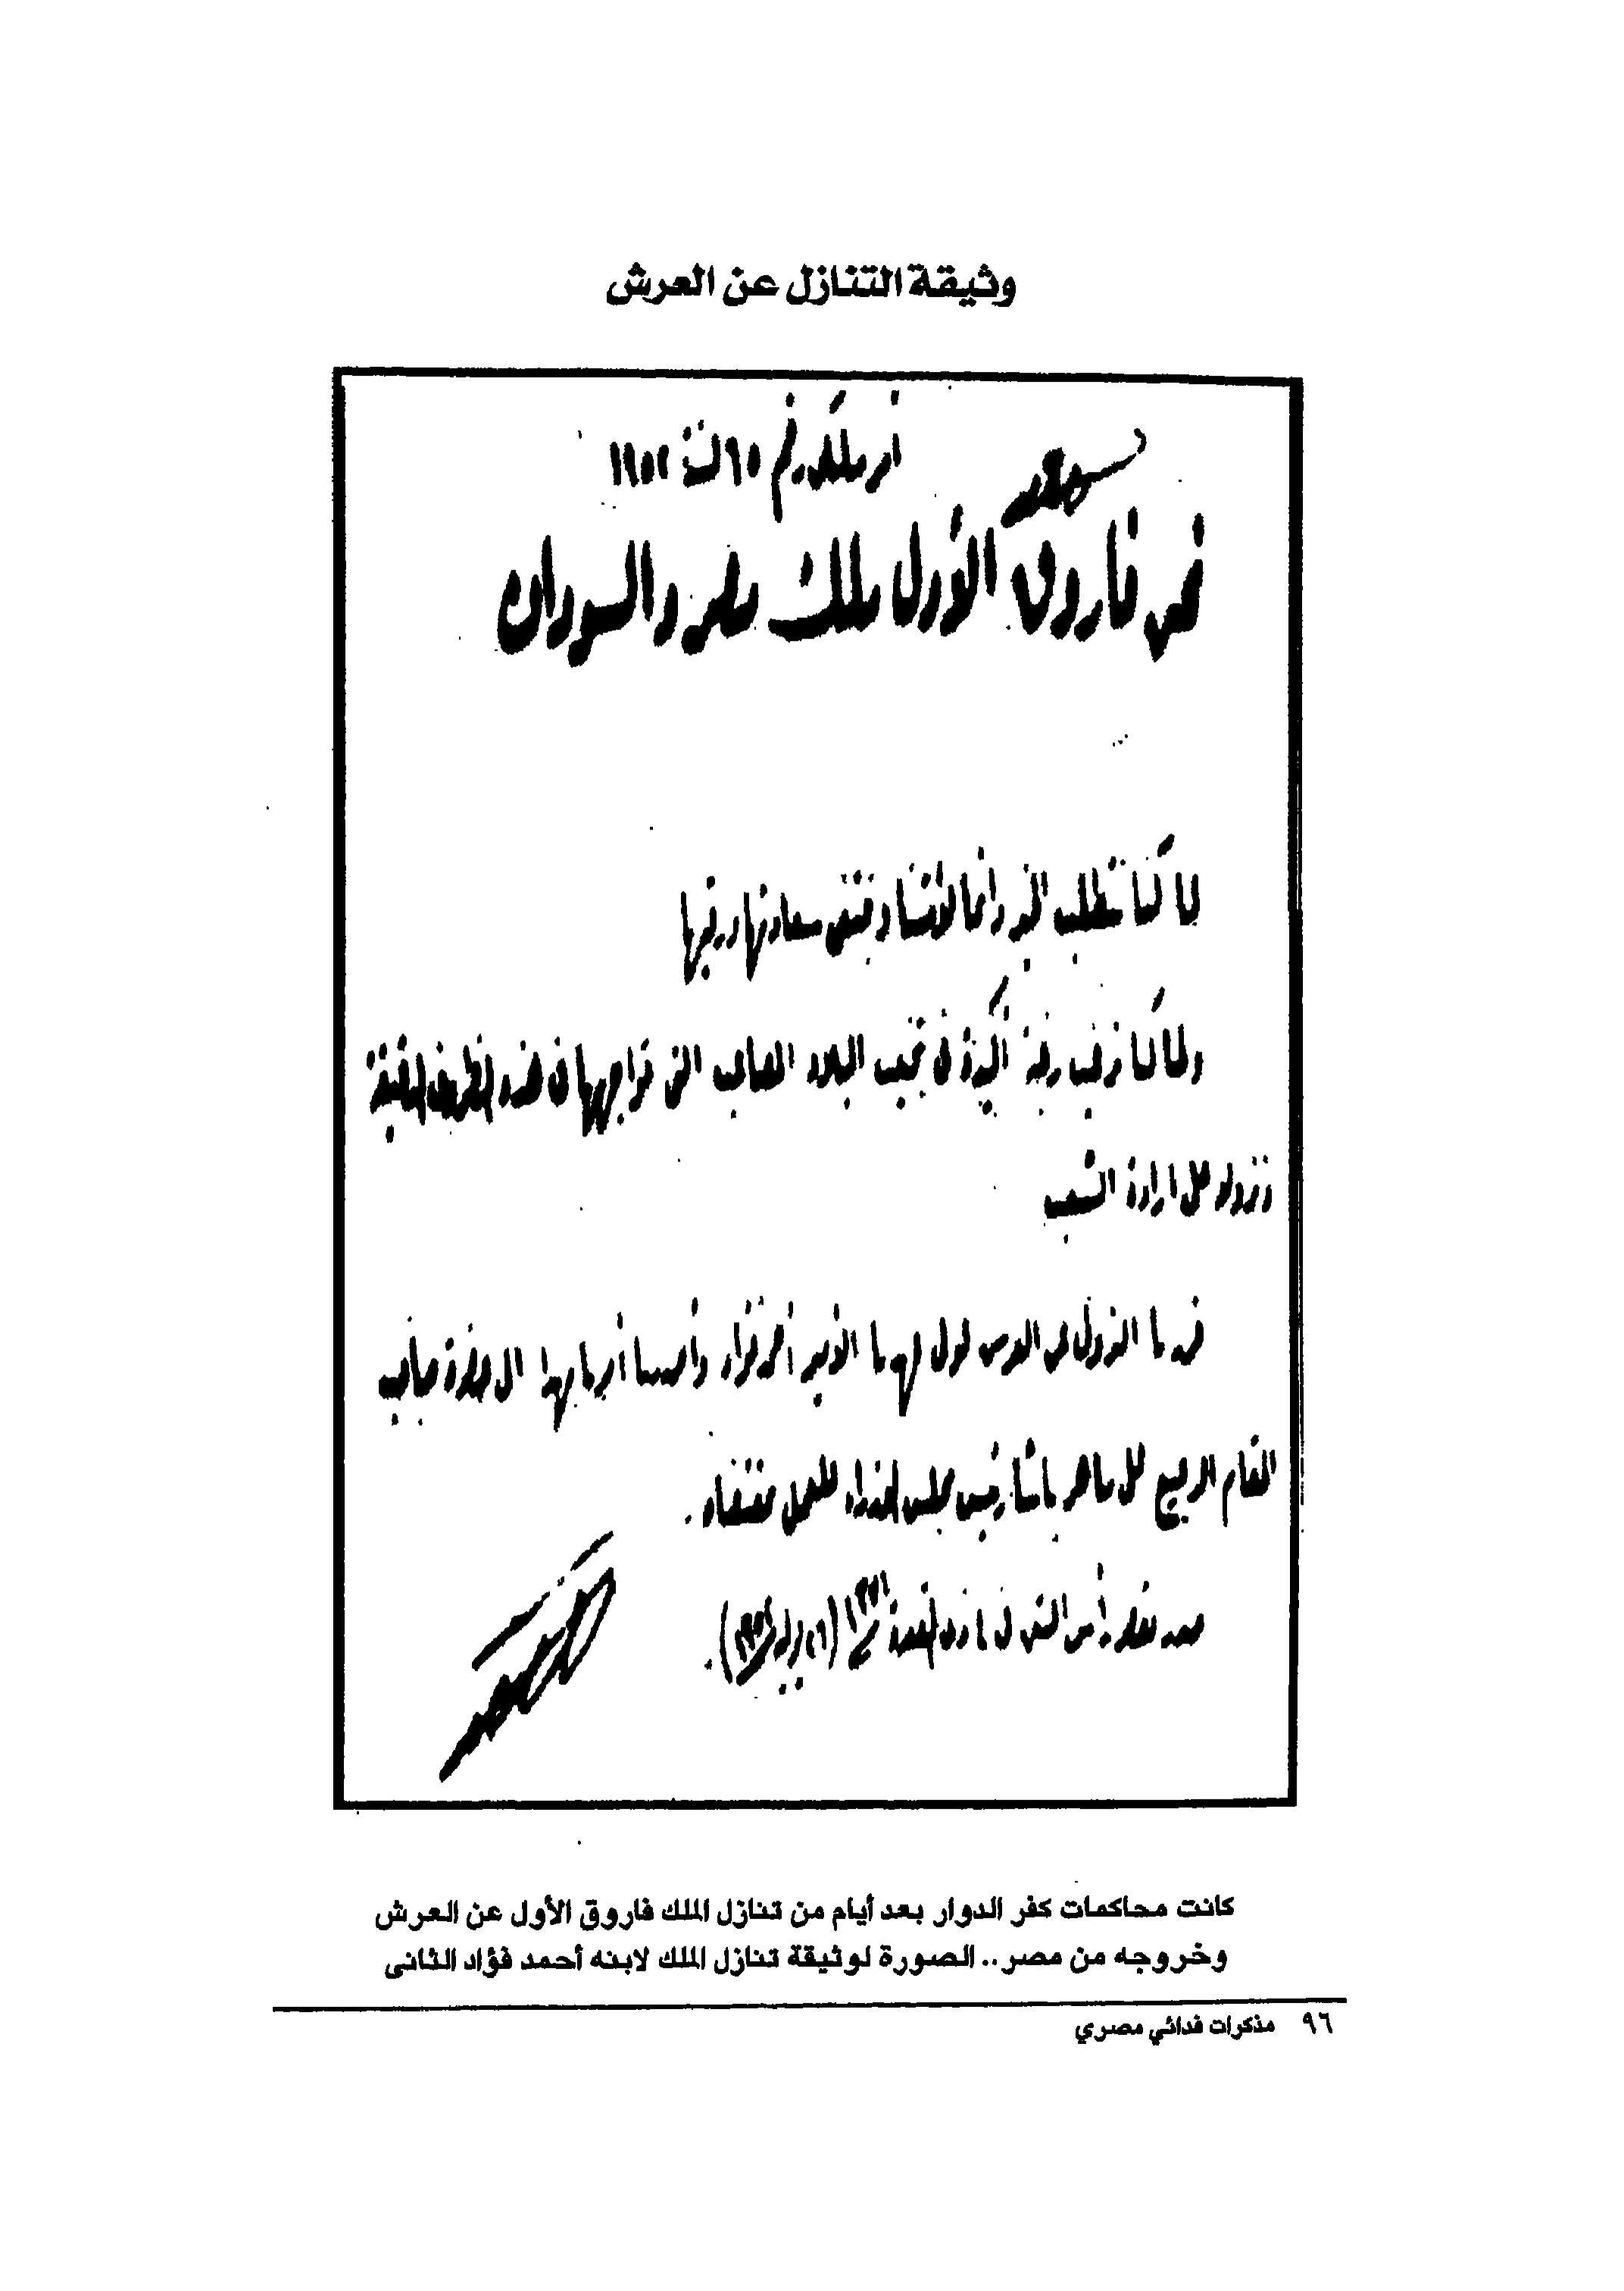 وثيقة التنازل عن العرش
أمر ملكى رقم ٦٥ لسنة ١٩٥٢
نحن فاروق الأول ملك مصر والسودان
لما كنا نتطلب الخير دائما لأمتنا ونبتغى سعادتها ورقيها
ولما كنا نرغب رغبة أكيدة فى تجنيب البلاد المصاعب التى تواجهها فى هذه الظروف الدقيقة
ونزولا على ارادة الشعب
قررنا النزول عن العرش لولى عهدنا الأمير أحمد فؤاد وأصدرنا أمرنا بهذا الى حضرة صاحب
المقام الرفيع على ماهر باشا رئيس مجلس الوزراء للعمل بمقتضاه .
صدر بقصر رأس التين فى ٤ ذى القعدة ١٣٧١ (٢٦ يوليه ١٩٥٢) .
كانت محاكمات كفر الدوار بعد أيام من تنازل الملك فاروق الأول عن العرش
وخروجه من مصر.. الصورة لوثيقة تنازل الملك لابنه أحمد فؤاد الثانى
٩٦ مذكرات فدائي مصري